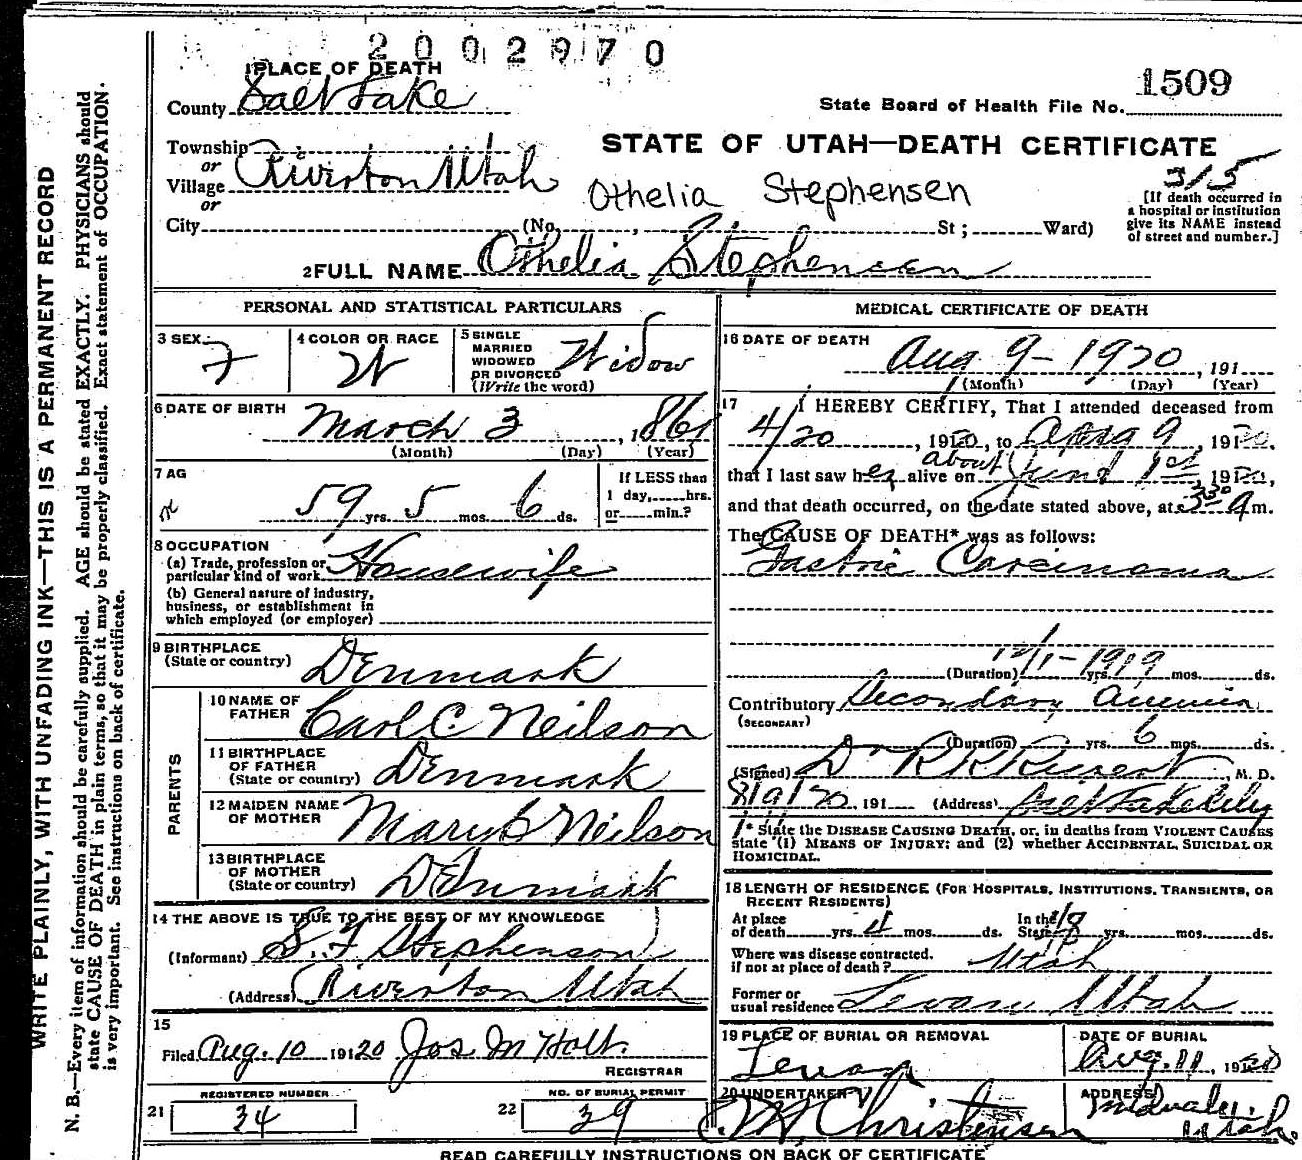 2002970
1 PLACE OF DEATH
1509
County Salt Lake
State Board of Health File No.
Township
STATE OF UTAH—DEATH CERTIFICATE
or
Village Riverton Utah
Othelia Stephensen
315
or
[If death occurred in
a hospital or institution
give its NAME instead
of street and number.]
City (No. St; Ward)
2 FULL NAME Othelia Stephensen
PERSONAL AND STATISTICAL PARTICULARS
3 SEX F
4 COLOR OR RACE W
5 SINGLE
MARRIED
WIDOWED
OR DIVORCED
(Write the word)
Widow
6 DATE OF BIRTH March 3, 1861
(Month) (Day) (Year)
7 AG
59 yrs. 5 mos. 6 ds.
If LESS than
1 day, hrs.
or min.?
8 OCCUPATION
(a) Trade, profession or
particular kind of work Housewife
(b) General nature of industry,
business, or establishment in
which employed (or employer)
9 BIRTHPLACE
(State or country) Denmark
PARENTS
10 NAME OF
FATHER Carl C. Neilson
11 BIRTHPLACE
OF FATHER
(State or country) Denmark
12 MAIDEN NAME
OF MOTHER Mary Neilson
13 BIRTHPLACE
OF MOTHER
(State or country) Denmark
14 THE ABOVE IS TRUE TO THE BEST OF MY KNOWLEDGE
(Informant) S. F. Stephenson
(Address) Riverton Utah
15
Filed Aug. 10 19120 Jos M Holt.
REGISTRAR
REGISTERED NUMBER
21 34
NO. OF BURIAL PERMIT
22 39
MEDICAL CERTIFICATE OF DEATH
16 DATE OF DEATH
Aug 9 - 1920, 191
(Month) (Day) (Year)
17 I HEREBY CERTIFY, That I attended deceased from
4/20, 1920, to Aug 9, 1920.
that I last saw her alive on about June 1st, 1920,
and that death occurred, on the date stated above, at 3 30 A m.
The CAUSE OF DEATH* was as follows:
Gastric Carcinoma
12/1-1919
(Duration) yrs. mos. ds.
Contributory Secondary anemia
(SECONDARY)
(Duration) yrs. 6 mos. ds.
(Signed) Dr R R, M. D.
8/9/20, 191 (Address) Salt Lake City
* State the DISEASE CAUSING DEATH, or, in deaths from VIOLENT CAUSES
state (1) MEANS OF INJURY; and (2) whether ACCIDENTAL, SUICIDAL OR
HOMICIDAL.
18 LENGTH OF RESIDENCE (FOR HOSPITALS, INSTITUTIONS, TRANSIENTS, OR
RECENT RESIDENTS)
At place
of death yrs. 4 mos. ds.
In the
State yrs. mos. ds.
Where was disease contracted,
if not at place of death? Utah
Former or
usual residence Levan Utah
19 PLACE OF BURIAL OR REMOVAL
Levan
DATE OF BURIAL
Aug. 11, 1920
20 UNDERTAKER
Christensen
ADDRESS
Midvale, Utah.
READ CAREFULLY INSTRUCTIONS ON BACK OF CERTIFICATE
WRITE PLAINLY, WITH UNFADING INK—THIS IS A PERMANENT RECORD
N. B.—Every item of information should be carefully supplied. AGE should be stated EXACTLY. PHYSICIANS should
state CAUSE OF DEATH in plain terms, so that it may be properly classified. Exact statement of OCCUPATION
is very important. See instructions on back of certificate.